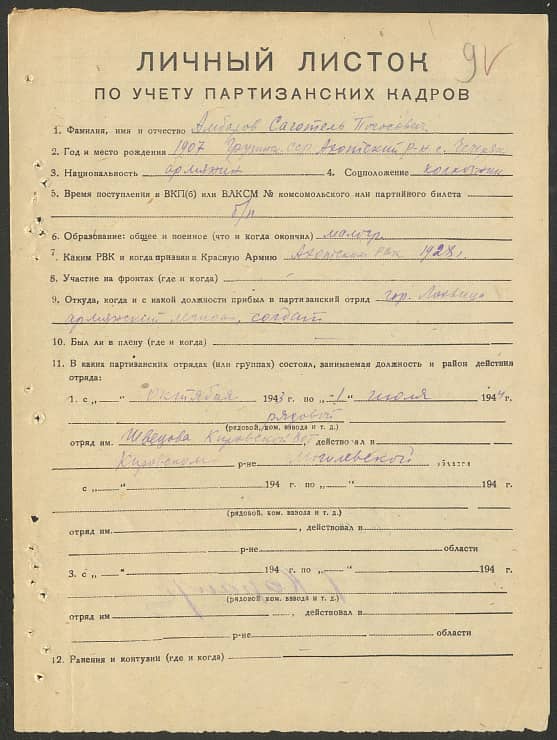 9V
ЛИЧНЫЙ ЛИСТОК
ПО УЧЕТУ ПАРТИЗАНСКИХ КАДРОВ
1. Фамилия, имя и отчество Погосович
2. Год и место рождения 1907 Грузин. ССР р-н с.
3. Национальность армянин 4. Соцположение колхозник
5. Время поступления в ВКП(б) или ВЛКСМ № комсомольского или партийного билета
б/п
6. Образование: общее и военное (что и когда окончил) малогр.
7. Каким РВК и когда призван в Красную Армию РВК 1928 г.
8. Участие на фронтах (где и когда)
9. Откуда, когда и с какой должности прибыл в партизанский отряд гор.
армянский легион, солдат
10. Был ли в плену (где и когда)
11. В каких партизанских отрядах (или группах) состоял, занимаемая должность и район действия
отряда:
1. с „ “ октября 1943 г. по „1“ июля 1944 г.
рядовой
(рядовой, ком. взвода и т. д.)
отряд им. Шведова Кировской, действовал в
Кировском р-не Могилевской области
с „ “ 194 г. по „ “ 194 г.
(рядовой, ком. взвода и т. д.)
отряд им. , действовал в
р-не области
3. с „ “ 194 г. по „ “ 194 г.
(рядовой, ком. взвода и т. д.)
отряд им , действовал в
р-не области
12. Ранения и контузии (где и когда)